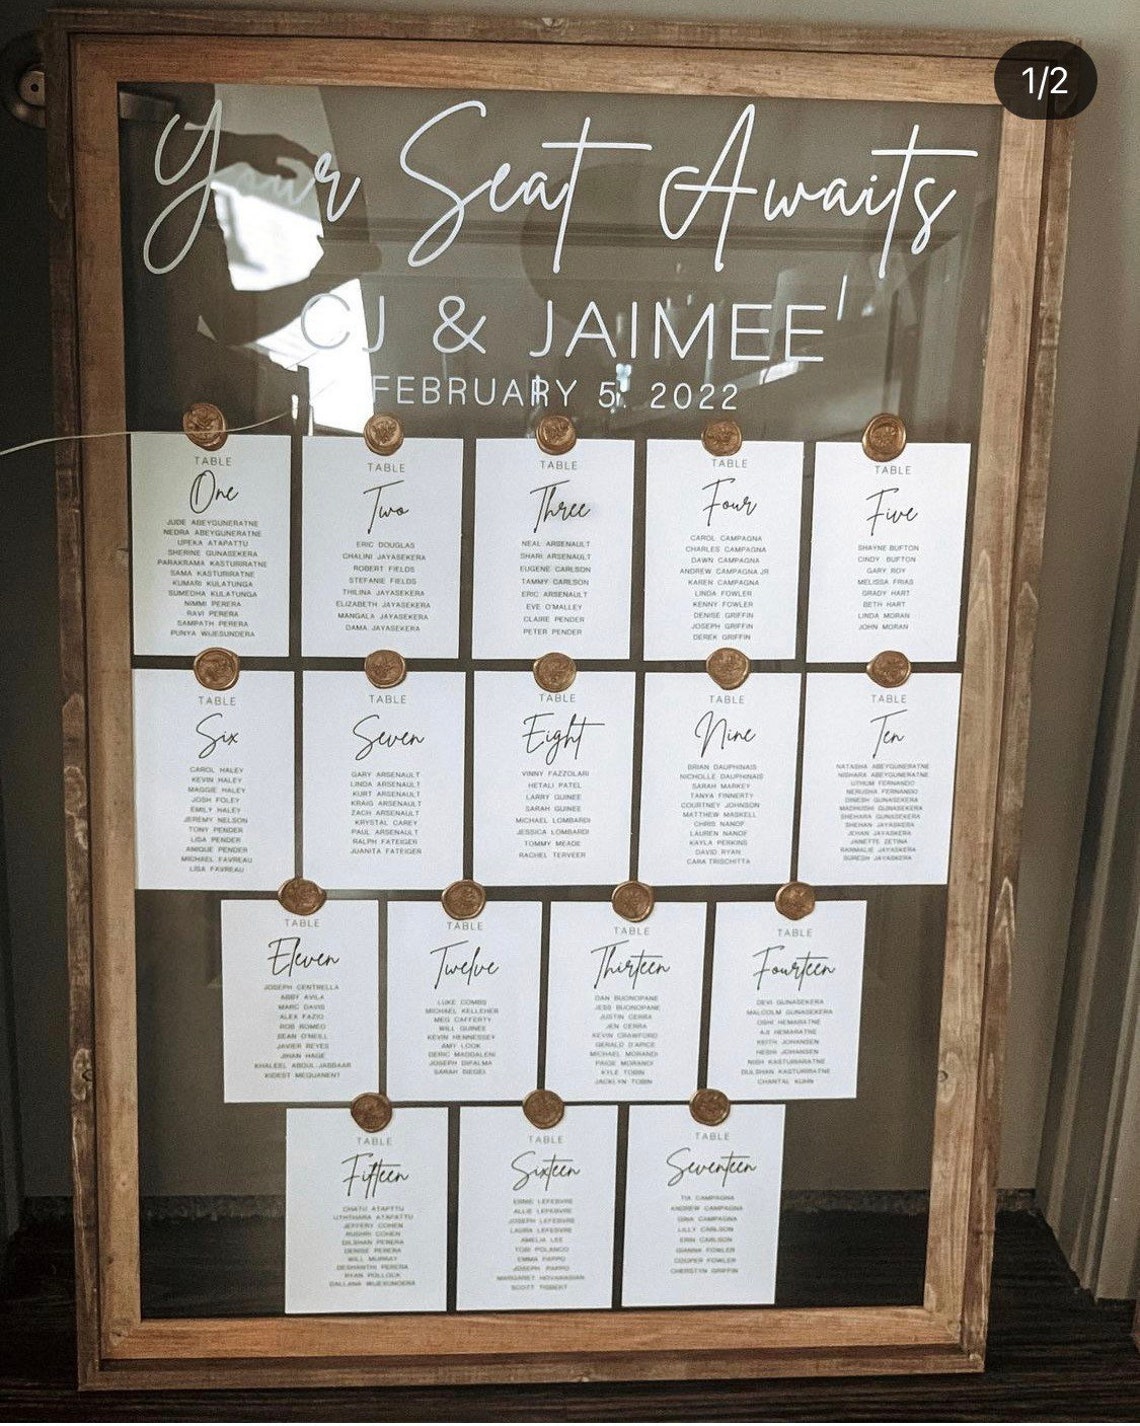 1/2
Your Seat Awaits
CJ & JAIMEE'
FEBRUARY 5, 2022
TABLE
One
JUDE ABEYGUNERATNE
NEDRA ABEYGUNERATNE
UPEKA ATAPATTU
SHERINE GUNASEKERA
PARAKRAMA KASTURIRATNE
SAMA KASTURIRATNE
KUMARI KULATUNGA
SUMEDHA KULATUNGA
NIMMI PERERA
RAVI PERERA
SAMPATH PERERA
PUNYA WIJESUNDERA
TABLE
Two
ERIC DOUGLAS
CHALINI JAYASEKERA
ROBERT FIELDS
STEFANIE FIELDS
THILINA JAYASEKERA
ELIZABETH JAYASEKERA
MANGALA JAYASEKERA
DAMA JAYASEKERA
TABLE
Three
NEAL ARSENAULT
SHARI ARSENAULT
EUGENE CARLSON
TAMMY CARLSON
ERIC ARSENAULT
EVE O'MALLEY
CLAIRE PENDER
PETER PENDER
TABLE
Four
CAROL CAMPAGNA
CHARLES CAMPAGNA
DAWN CAMPAGNA
ANDREW CAMPAGNA JR
KAREN CAMPAGNA
LINDA FOWLER
KENNY FOWLER
DENISE GRIFFIN
JOSEPH GRIFFIN
DEREK GRIFFIN
TABLE
Five
SHAYNE BUFTON
CINDY BUFTON
GARY ROY
MELISSA FRIAS
GRADY HART
BETH HART
LINDA MORAN
JOHN MORAN
TABLE
Six
CAROL HALEY
KEVIN HALEY
MAGGIE HALEY
JOSH FOLEY
EMILY HALEY
JEREMY NELSON
TONY PENDER
LISA PENDER
ANIQUE PENDER
MICHAEL FAVREAU
LISA FAVREAU
TABLE
Seven
GARY ARSENAULT
LINDA ARSENAULT
KURT ARSENAULT
KRAIG ARSENAULT
ZACH ARSENAULT
KRYSTAL CAREY
PAUL ARSENAULT
RALPH FATEIGER
JUANITA FATEIGER
TABLE
Eight
VINNY FAZZOLARI
HETALI PATEL
LARRY GUINEE
SARAH GUINEE
MICHAEL LOMBARDI
JESSICA LOMBARDI
TOMMY MEADE
RACHEL TERVEER
TABLE
Nine
BRIAN DAUPHINAIS
NICHOLLE DAUPHINAIS
SARAH MARKEY
TANYA FINNERTY
COURTNEY JOHNSON
MATTHEW MASKELL
CHRIS NANOF
LAUREN NANOF
KAYLA PERKINS
DAVID RYAN
CARA TRISCHITTA
TABLE
Ten
NATASHA ABEYGUNERATNE
NISHARA ABEYGUNERATNE
UTHUM FERNANDO
NERUSHA FERNANDO
DINESH GUNASEKERA
MADHUSHI GUNASEKERA
SHEHARA GUNASEKERA
SHEHAN JAYASKERA
JEHAN JAYASKERA
JANETTE ZETINA
RANMALIE JAYASKERA
SURESH JAYASKERA
TABLE
Eleven
JOSEPH CENTRELLA
ABBY AVILA
MARC DAVIS
ALEX FAZIO
ROB ROMEO
SEAN O'NEILL
JAVIER REYES
JIHAN HAGE
KHALEEL ABOUL-JABBAAR
KIDEST MEQUANENT
TABLE
Twelve
LUKE COMBS
MICHAEL KELLEHER
MEG CAFFERTY
WILL GUINEE
KEVIN HENNESSEY
AMY LOOK
DERIC MADDALENI
JOSEPH DIPALMA
SARAH SIEGEL
TABLE
Thirteen
DAN BUONOPANE
JESS BUONOPANE
JUSTIN CERRA
JEN CERRA
KEVIN CRAWFORD
GERALD D'APICE
MICHAEL MORANDI
PAIGE MORANDI
KYLE TOBIN
JACKLYN TOBIN
TABLE
Fourteen
DEVI GUNASEKERA
MALCOLM GUNASEKERA
OSHI HEMARATNE
AJI HEMARATNE
KEITH JOHANSEN
HESHI JOHANSEN
NISH KASTURIARATNE
DULSHAN KASTURIRATNE
CHANTAL KUHN
TABLE
Fifteen
CHATU ATAPTTU
UTHTHARA ATAPATTU
JEFFERY COHEN
RUSHRI COHEN
DILSHAN PERERA
DENISE PERERA
WILL MURRAY
DESHANTHI PERERA
RYAN POLLOCK
DALLANA WIJESUNDERA
TABLE
Sixteen
ERNIE LEFEBVRE
ALLIE LEFEBVRE
JOSEPH LEFEBVRE
LAURA LEFEBVRE
AMELIA LEE
TORI POLANCO
EMMA PAPPO
JOSEPH PAPPO
MARGARET HOVANASIAN
SCOTT TISBERT
TABLE
Seventeen
TIA CAMPAGNA
ANDREW CAMPAGNA
GINA CAMPAGNA
LILLY CARLSON
ERIN CARLSON
GIANNA FOWLER
COOPER FOWLER
CHERSTYN GRIFFIN